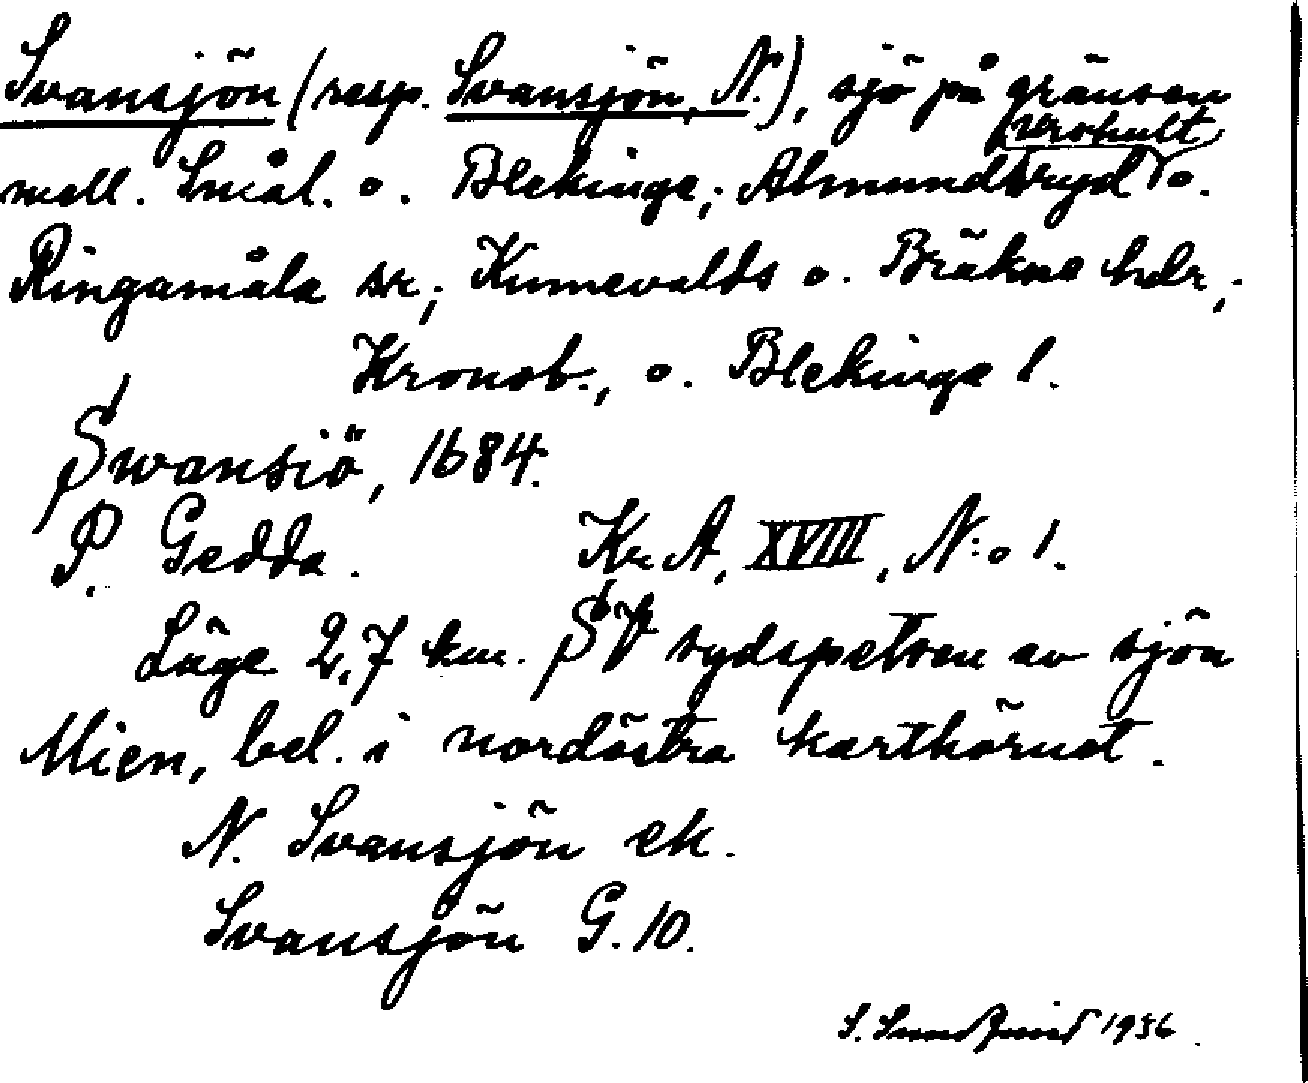 Svansjön (resp. Svansjön, N.), sjö på gränsen
mell. Smål. o. Blekinge; Almundsryd o.
Ringamåla sr; Kinnevalds o. Bräkne hdr;
Kronob., o. Blekinge l.
Swansiö, 1684.
P. Gedda. Kr. A, XVIII, N:o 1.
Läge 2,7 km. SV sydspetsen av sjön
Mien, bel. i nordöstra karthörnet.
N. Svansjön ek.
Svansjön G. 10.
S. 1936